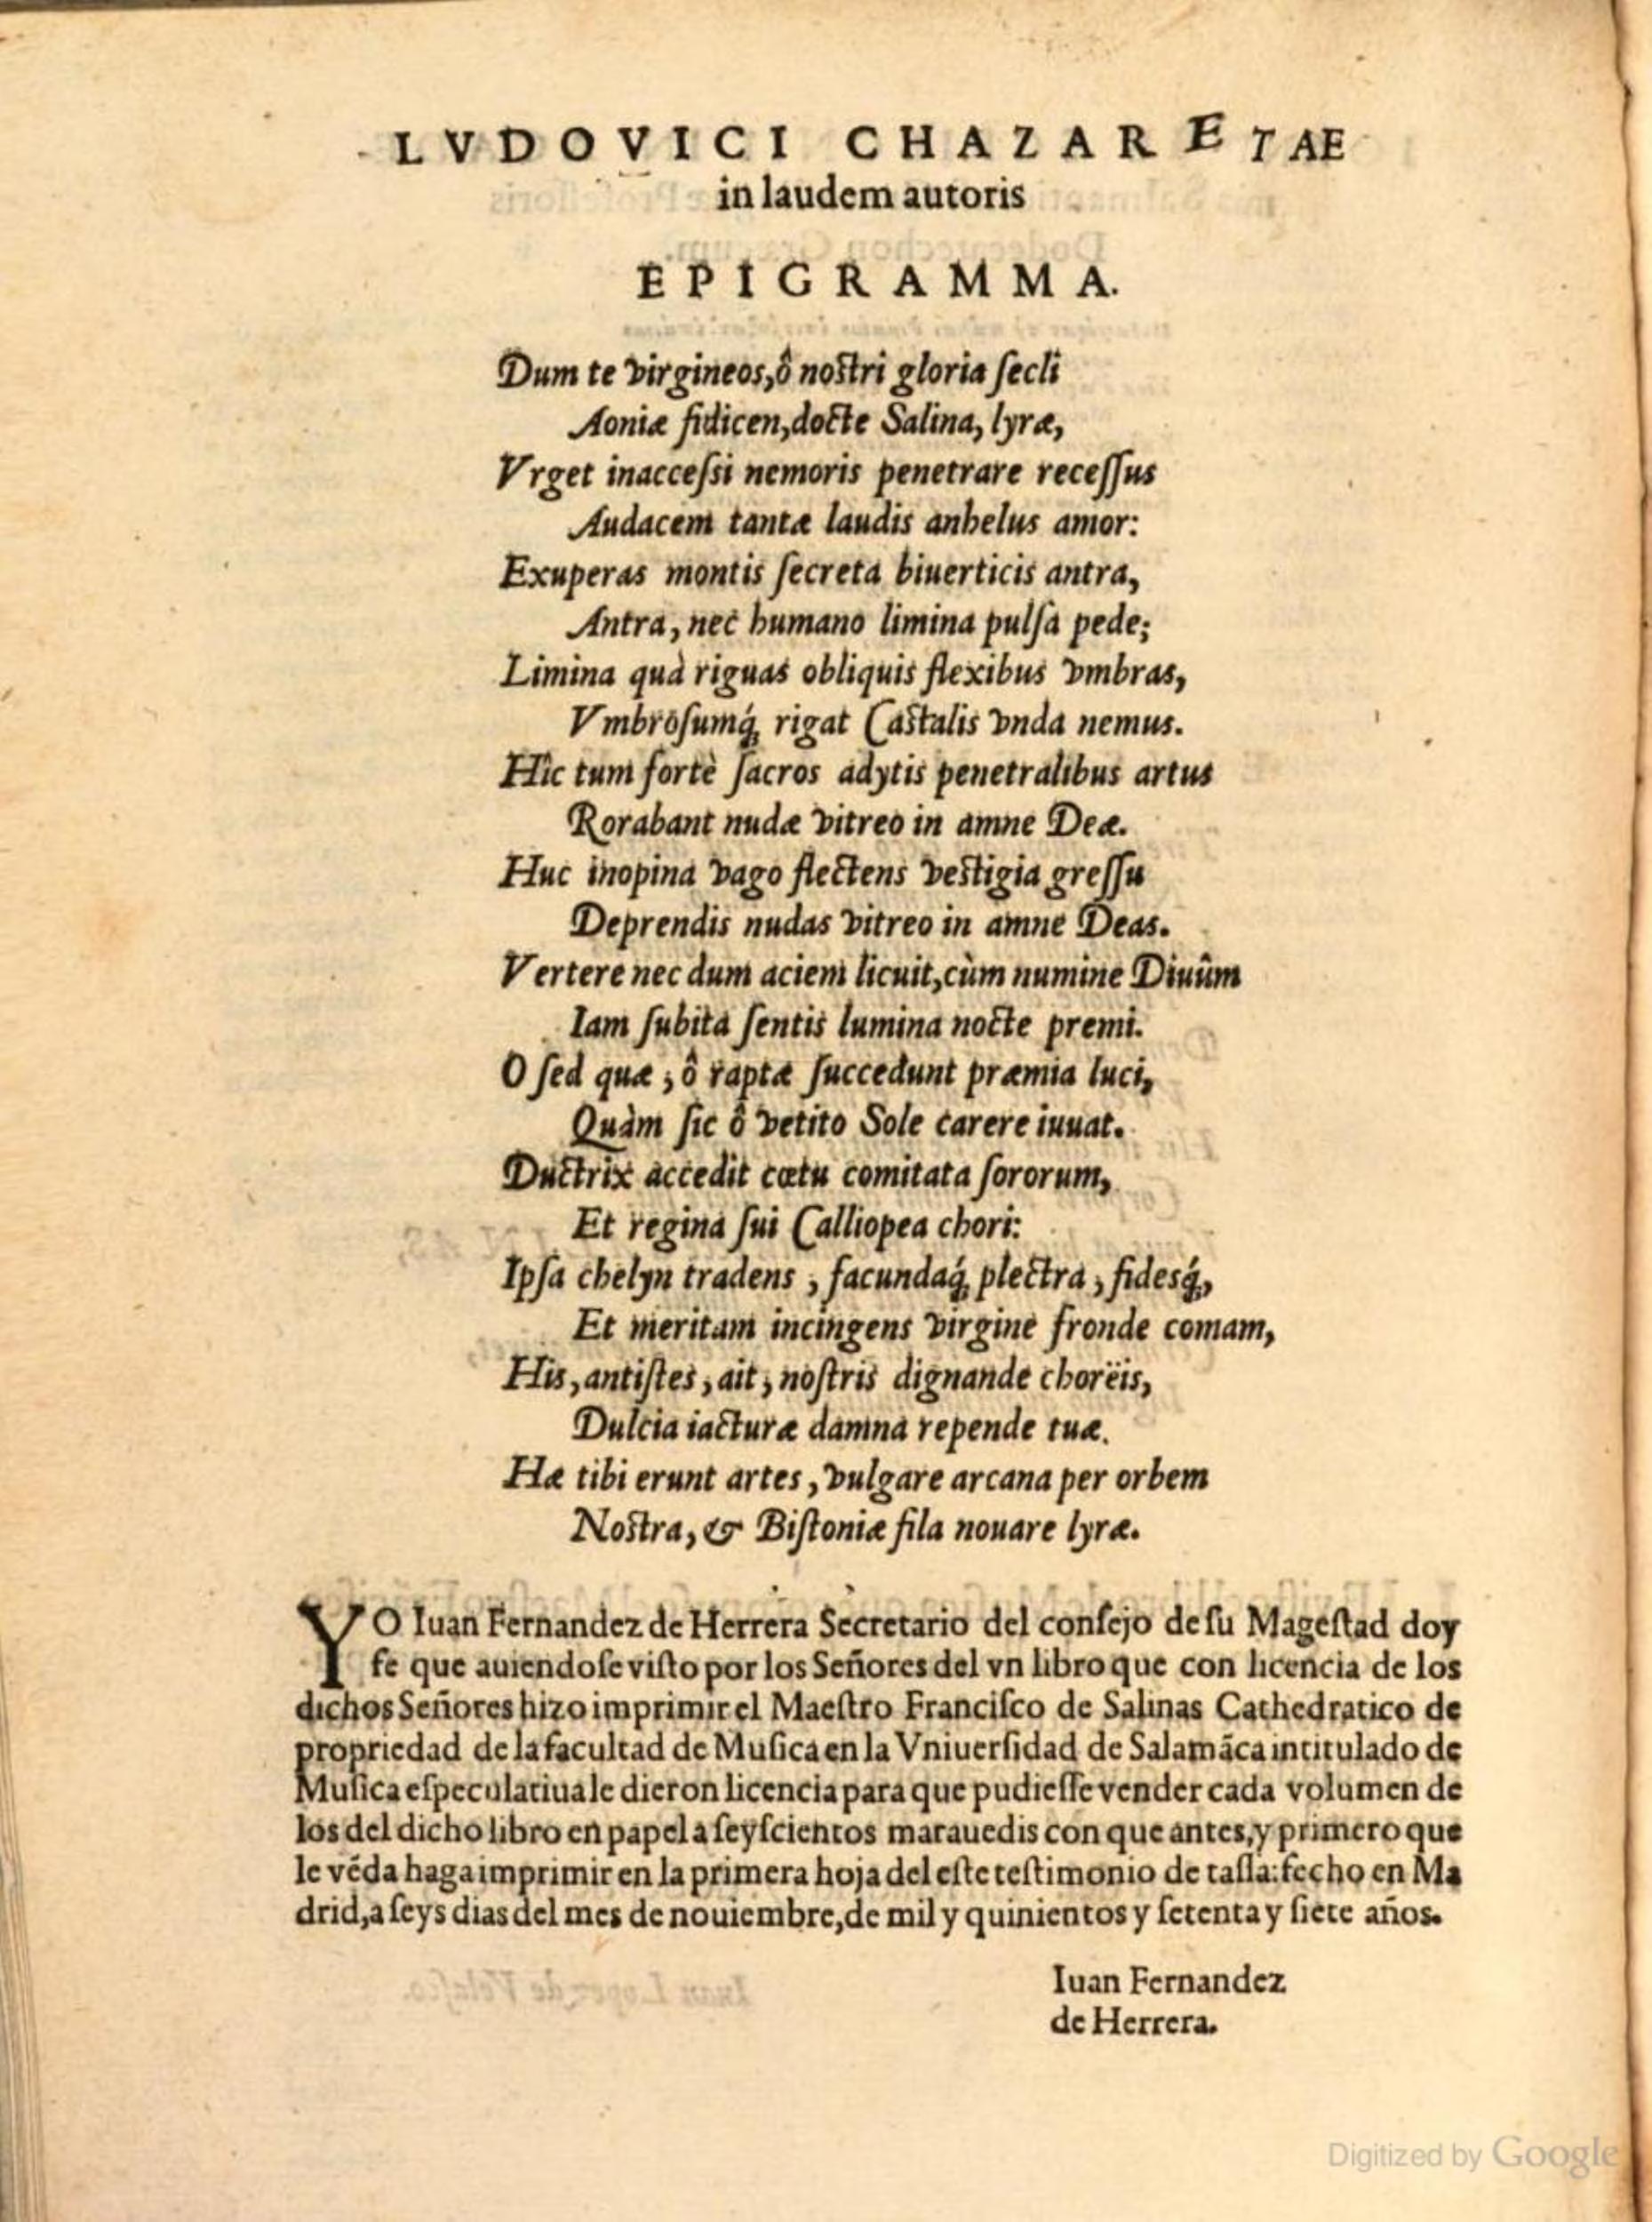 LVDOVICI CHAZARETAE
in laudem autoris
EPIGRAMMA.
Dum te virgineos, ô nostri gloria ſecli
Aoniæ fidicen, docte Salina, lyræ,
Vrget inacceſsi nemoris penetrare receſſus
Audacem tantæ laudis anhelus amor:
Exuperas montis ſecreta biuerticis antra,
Antra, nec humano limina pulſa pede;
Limina quà riguas obliquis flexibus vmbras,
Vmbroſumq́; rigat Castalis vnda nemus.
Hîc tum fortè ſacros adytis penetralibus artus
Rorabant nudæ vitreo in amne Deæ.
Huc inopina vago flectens vestigia greſſu
Deprendis nudas vitreo in amne Deas.
Vertere nec dum aciem licuit, cùm numine Diuûm
Iam ſubita ſentis lumina nocte premi.
O ſed quæ, ô raptæ ſuccedunt præmia luci,
Quàm ſic ô vetito Sole carere iuuat.
Ductrix accedit cœtu comitata ſororum,
Et regina ſui Calliopea chori:
Ipſa chelyn tradens, facundaq́; plectra, fidesq́;,
Et meritam incingens virgine fronde comam,
His, antiſtes, ait, noſtris dignande choreïs,
Dulcia iacturæ damna repende tuæ.
Hæ tibi erunt artes, vulgare arcana per orbem
Nostra, & Biſtoniæ fila nouare lyræ.
YO Iuan Fernandez de Herrera Secretario del conſejo de ſu Mageſtad doy
fe que auiendoſe viſto por los Señores del vn libro que con licencia de los
dichos Señores hizo imprimir el Maeſtro Franciſco de Salinas Cathedratico de
propriedad de la facultad de Muſica en la Vniuerſidad de Salamãca intitulado de
Muſica eſpeculatiua le dieron licencia para que pudieſſe vender cada volumen de
los del dicho libro en papel a ſeyſcientos marauedis con que antes, y primero que
le vẽda haga imprimir en la primera hoja del eſte teſtimonio de taſſa: fecho en Ma
drid, a ſeys dias del mes de nouiembre, de mil y quinientos y ſetenta y ſiete años.
Iuan Fernandez
de Herrera.
Digitized by Google